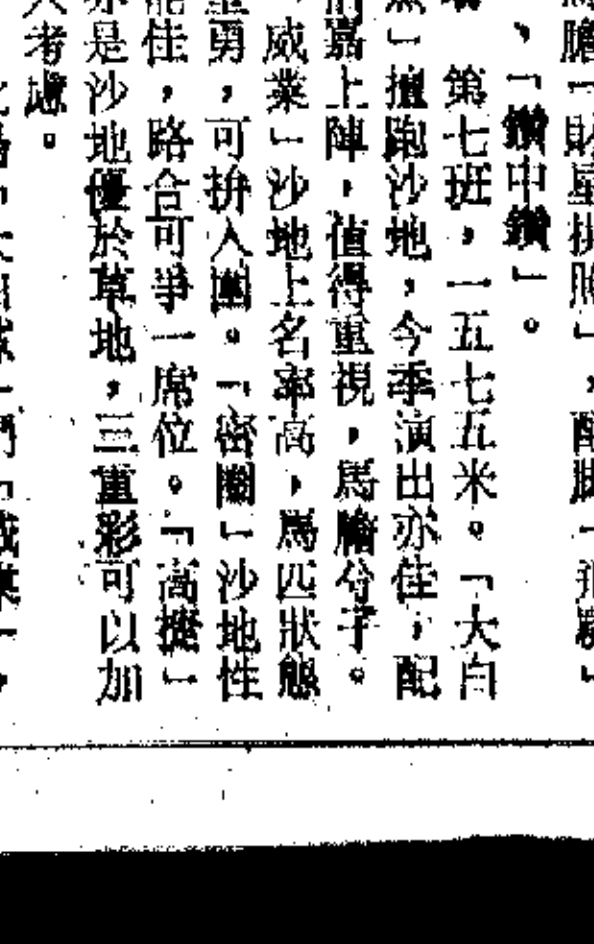 膽「財星拱照」，配脚「飛
、「鑽中鑽」。
第七班，一五七五米。「大白
」擅跑沙地，今季演出亦佳，配
嘉上陣，值得重視，馬膽分子。
威業」沙地上名率高，馬匹狀態
勇，可拚入圍。「密」沙地性
能佳，路合可爭一席位。「高」
亦是沙地優於草地，三重彩可以加
入考慮。